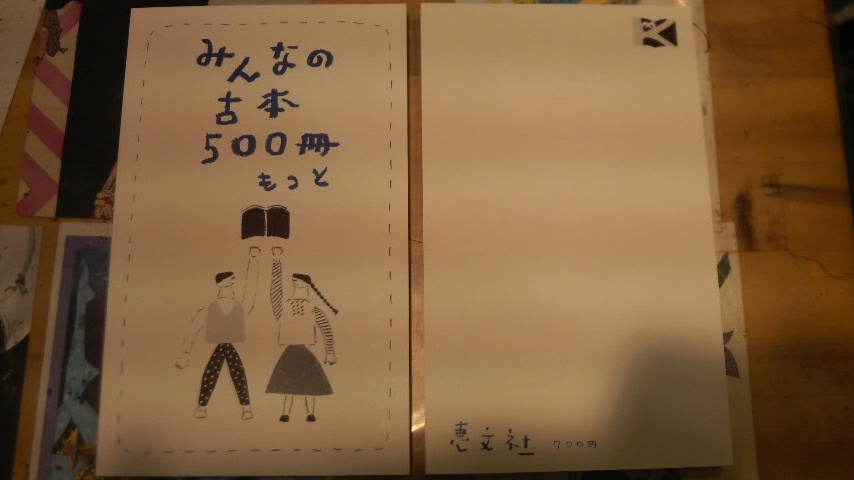 みんなの
古本
500冊
もっと
恵文社 700円